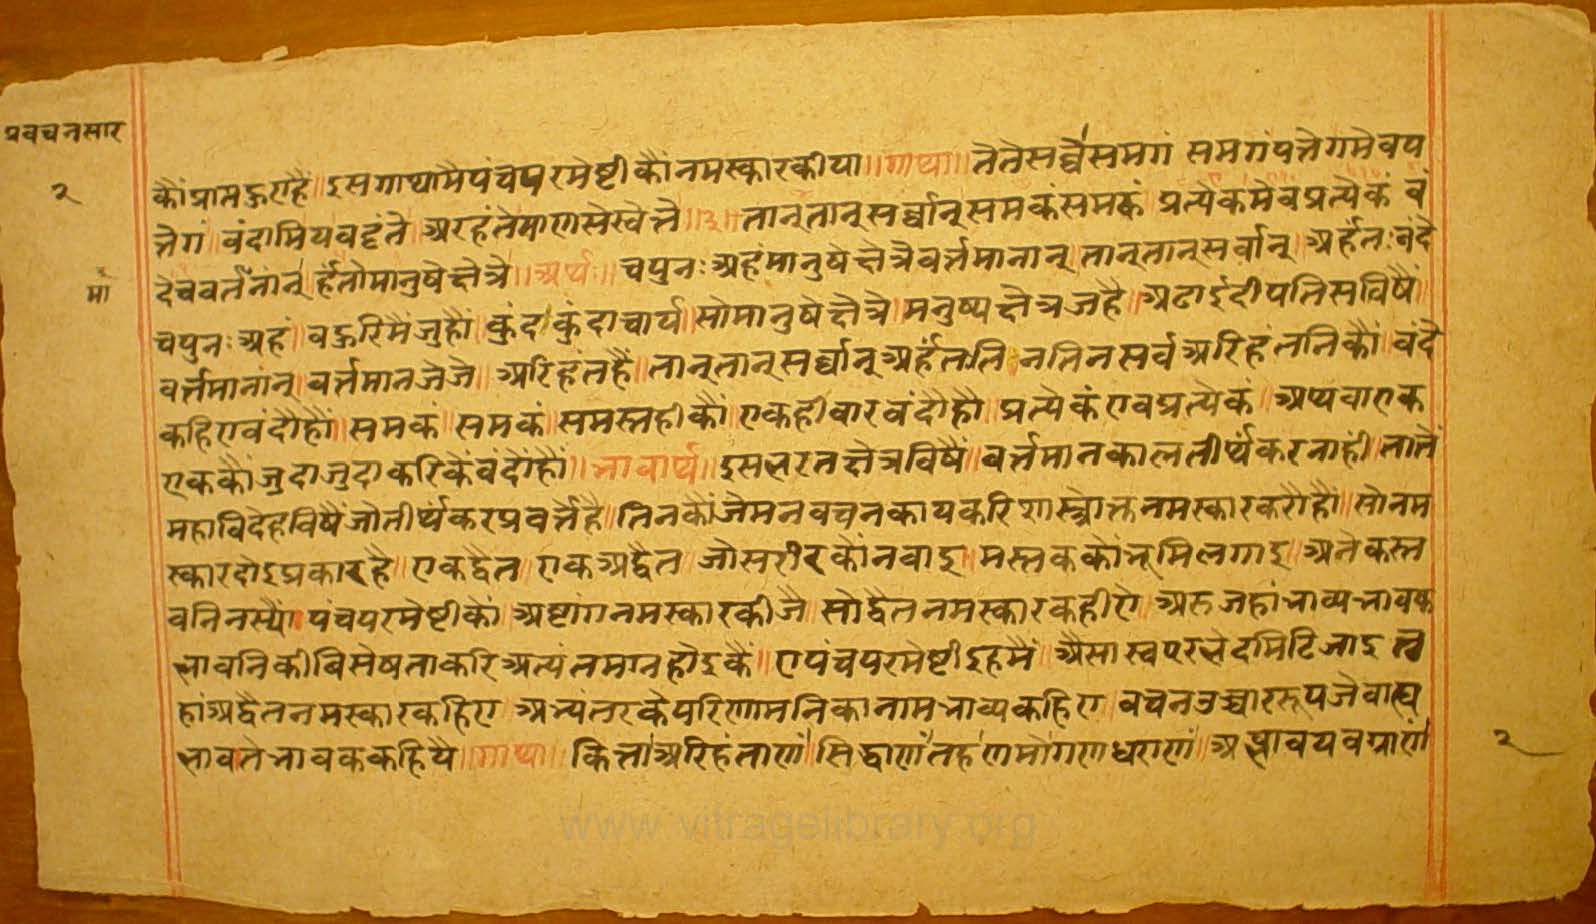 प्रवचनसार
२
कौं प्राप्त हुए है॥ इस गाथामै पंचपरमेष्टी कौं नमस्कार कीया॥ गाथा॥ ते ते सव्वे समगं समगं पत्तेगमेव प
त्तेगं॥ वंदामि य वट्टंते अरहंते माणुसे खेत्ते॥३॥ तान् तान् सर्व्वान् समकं समकं प्रत्येकमेव प्रत्येकं वं
दे च वर्तमानान् अर्हंतो मानुषे क्षेत्रे॥ अर्थः॥ च पुनः अहं मानुषे क्षेत्रे वर्त्तमानान् तान् तान् सर्वान् अर्हतः वंदे
मा
च पुनः अहं॥ बहुरि मैं जु हौं कुंदकुंदाचार्य॥ सो मानुषे क्षेत्रे॥ मनुष्य क्षेत्र ज है॥ अढाई द्वीप तिस विषैं॥
वर्त्तमानान् वर्त्तमान जे जे॥ अरिहंत हैं॥ तान् तान् सर्व्वान् अर्हतः तिनि तिन सर्व अरिहंतनि कौं॥ वंदे
कहिए वंदौ हौं॥ समकं॥ समकं॥ समस्तही कौं॥ एकही वार वंदौ हौं॥ प्रत्येकं एव प्रत्येकं॥ अथवा एक
एक कौं जुदा जुदा करिकैं वंदौं हौं॥ भावार्थ॥ इस भरत क्षेत्र विषैं॥ वर्त्तमान काल तीर्थंकर नाही॥ तातैं
महाविदेह विषैं जौ तीर्थंकर प्रवर्त्तै है॥ तिनकौं जे मन वचन काय करि शास्त्रोक्त नमस्कार करौ हौं॥ सो नम
स्कार दोइ प्रकार है॥ एक द्वैत॥ एक अद्वैत जो सरीर कौं नवाइ॥ मस्तक कों भूमि लगाइ॥ अनेक स्त
वनिनस्यौं पंचपरमेष्टी कौं अष्टांग नमस्कार कीजै सो द्वैत नमस्कार कहीऐ॥ अरु जहां भाव्य भावक
भावनि की बिसेषता करि अत्यंत मगन होइ कैं॥ ए पंचपरमेष्टी इह मैं॥ अैसा स्वपर भेद मिटि जाइ त
हां अद्वैत नमस्कार कहिए अभ्यंतर के परिणामनि का नाम भाव्य कहिए वचन उच्चार रूप जे वाह्य
भाव ते भावक कहियै॥ गाथा॥ किच्चा अरिहंताणं॥ सिद्धाणं तह णमो गणधराणं॥ अज्झावयवग्गाणं
२
www.vitragelibrary.org